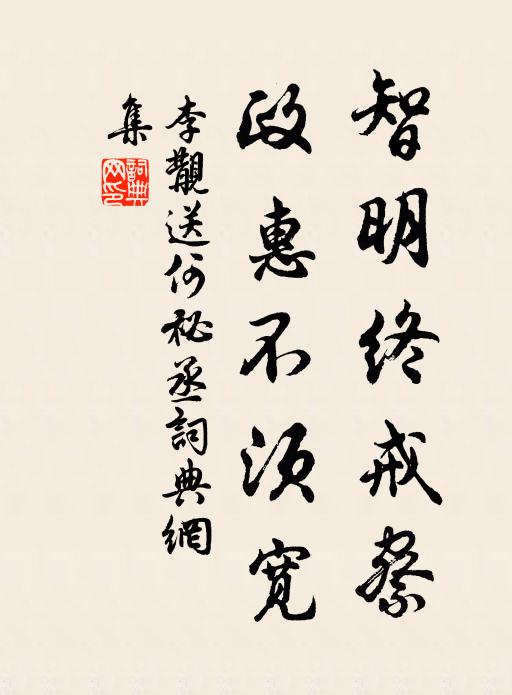 智明终戒察
政惠不须宽
李覯送何祕丞詞典網
集
詞典
网印